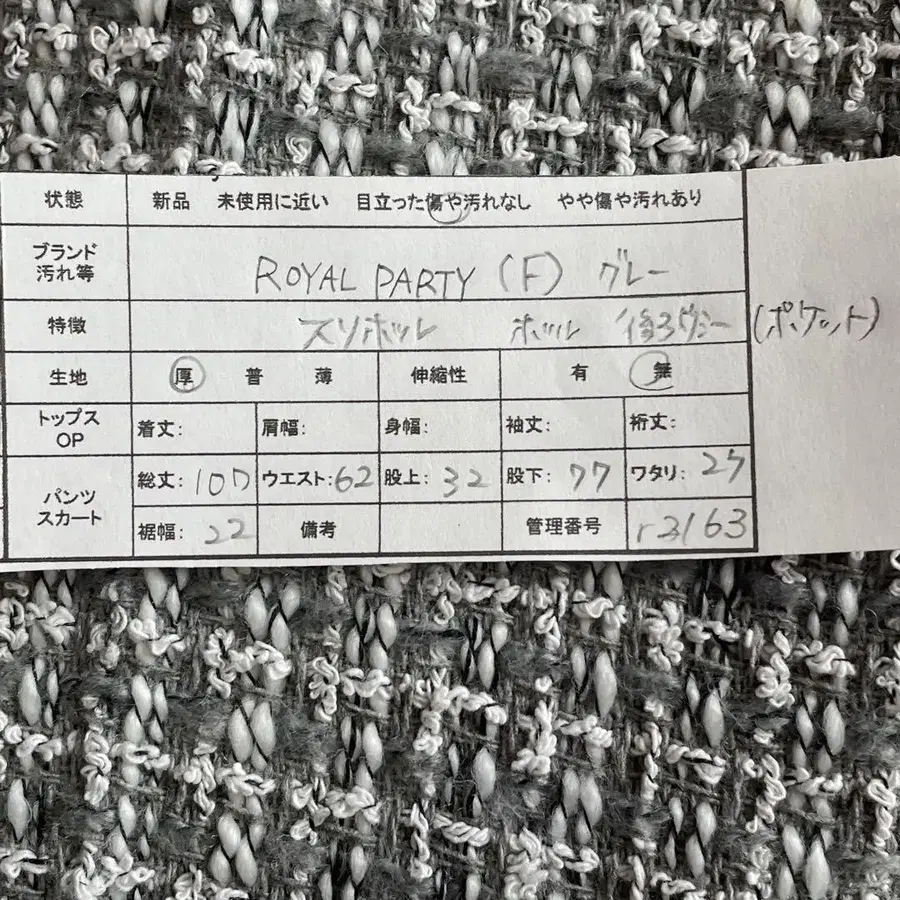 状態 新品 未使用に近い 目立った傷や汚れなし やや傷や汚れあり
ブランド
汚れ等
ROYAL PARTY (F) グレー
特徴 (ポケット)
生地 厚 普 薄 伸縮性 有 無
トップス
OP
着丈: 肩幅: 身幅: 袖丈: 裄丈:
パンツ
スカート
総丈: 107 ウエスト: 62 股上: 32 股下: 77 ワタリ:
裾幅: 22 備考 管理番号 r3163